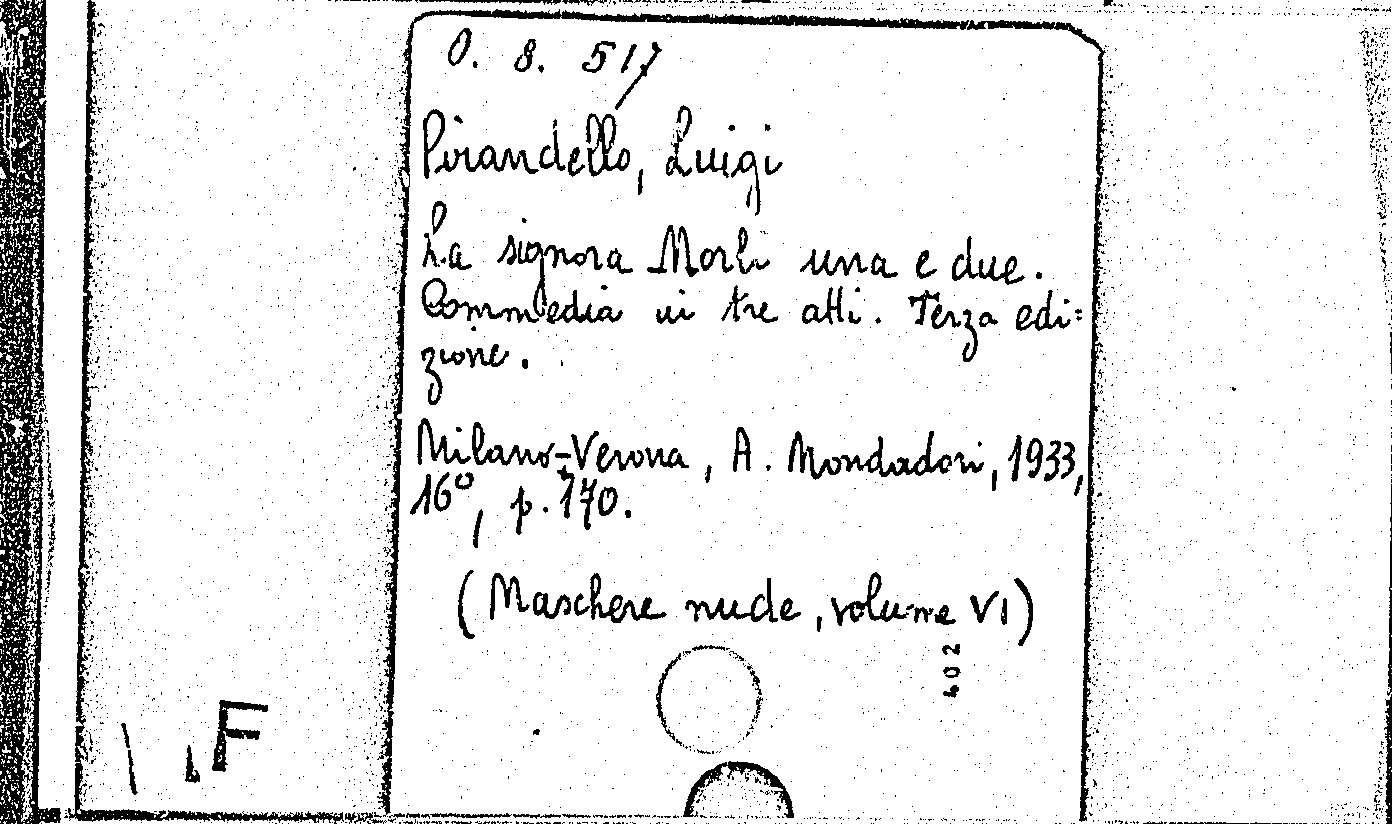 O. 8. 517
Pirandello, Luigi
La signora Morli una e due.
Commedia in tre atti. Terza edi=
zione.
Milano-Verona, A. Mondadori, 1933,
16°, p. 170.
(Maschere nude, volume VI)
402
F